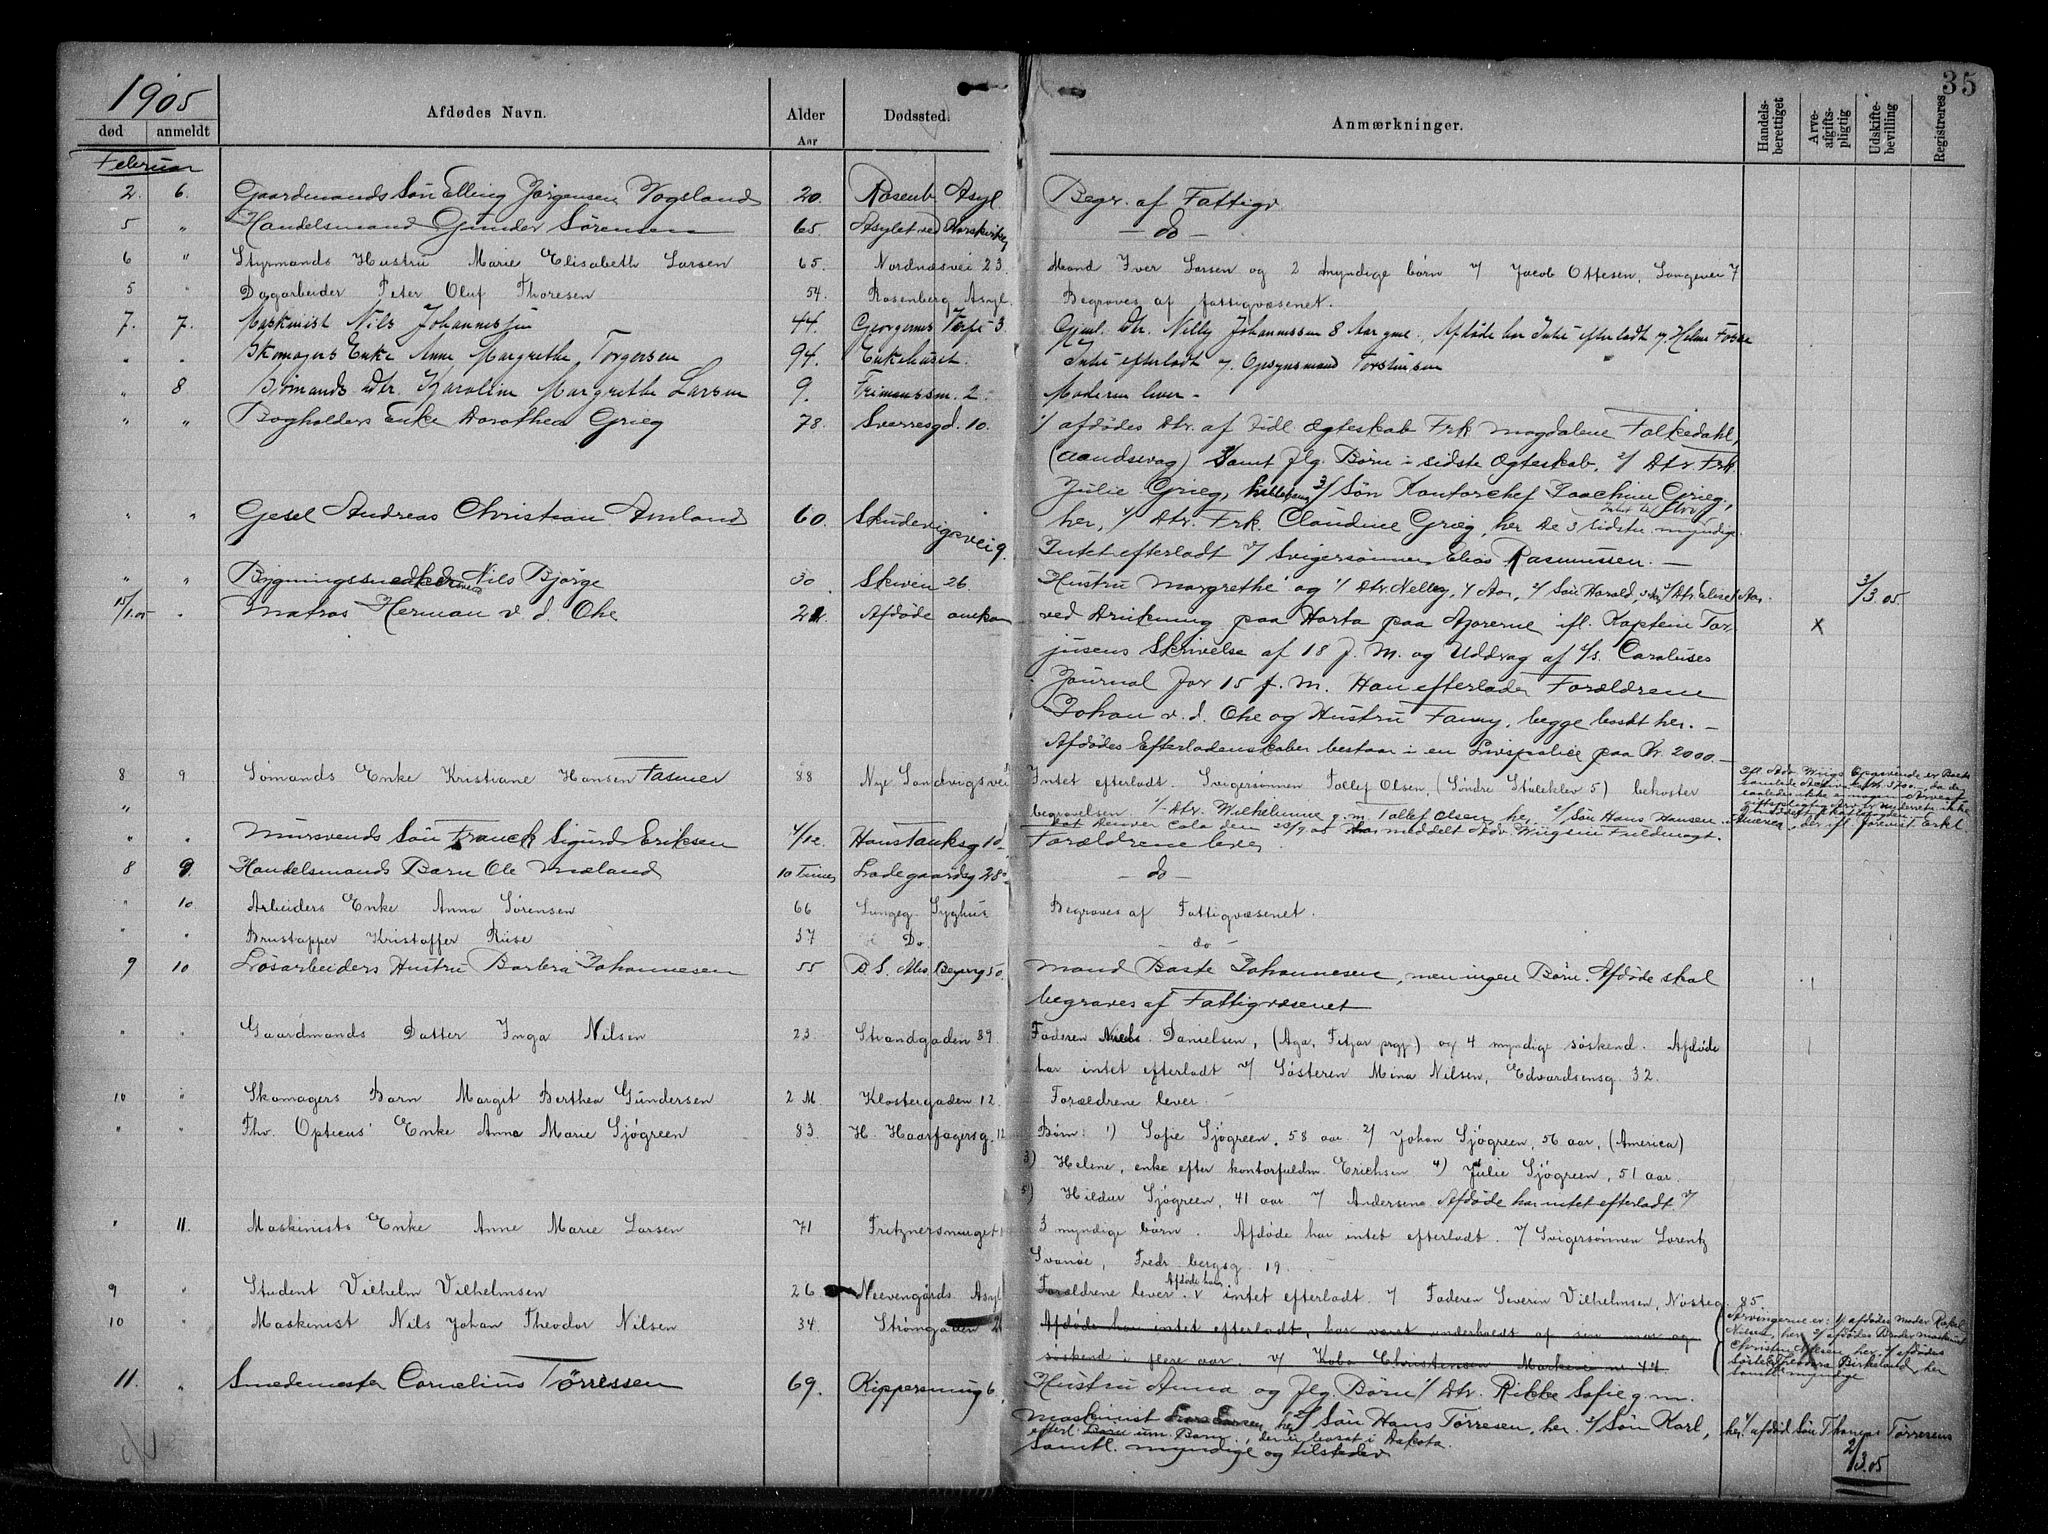 35
1905
død anmeldt Afdødes Navn. Alder Aar Dødssted. Anmærkninger. Handelsberettiget Arveafgiftspligtig Udskiftebevilling Registreres
Februar
2. 6. Gaardmands Søn Elling Jørgensen Vogsland 20. Rosenb. Asyl Begr. af Fattigv.
5 " Handelsmand Gunder Sørensen 65. Asylet ved - do -
6 " Styrmands Hustru Marie Elisabeth Larsen 65. Nordnæsvei 23. Mand Iver Larsen og 2 myndige børn v/ Jacob Ottesen, Lungevei 7
5 " Dagarbeider Peter Oluf Thoresen 54 Rosenberg Asyl. Begraves af fattigvæsenet.
7. 7. Maskinist Nils Johannssen 44. Georgernes 3. Gjenl. Dtr. Nelly Johannssen 8 Aar gml. Afdøde har Intet efterladt v/
" " Skomagers Enke Anne Margrethe Torgersen 94. Enkehuset. Intet efterladt v/ Opsynsmand Torstensen
" 8 Dtr. Karoline Margrethe Larsen 9. 2. Moderen lever -
" " Bogholders Enke Dorothea Grieg 78. Sverresgd. 10. 1/ afdødes Dtr. af tidl. Ægteskab Frk Magdalene Falkedahl,
(aandssvag) samt flg. Børn i sidste Ægteskab, 2/ Dtr. Frk.
Julie Grieg, 3/ Søn Kontorchef Joachim Grieg,
" " Gesel Andreas Christian Amland 60. Skudevigsvei 9. her, 4/ Dtr. Frk. Claudine Grieg, her De 3 sidste myndige.
Intet efterladt v/ Svigersønnen Elias Rasmussen. -
" " Bygningssnedker Nils Bjørge 30 Skiven 26. Hustru Margrethe og 1/ Dtr. Nelly, 4 Aar, 2/ Søn Harald, 3/ Dtr Else 1 Aar. 3/3.05.
15/1.05 " Matros Herman v. d. Ohe 22 Afdøde omkom ved Drukning paa Horta paa Azorerne ifl. Kaptein Tor- x
jusens Skrivelse af 18 f. M. og Uddrag af s/s. Caroluses
Journal for 15 f. M. Han efterlader Forældrene
Johan v. d. Ohe og Hustru Fanny, begge bosat her. -
Afdødes Efterladenskaber bestaar i en Livspolice paa Kr. 2000. -
8 9 Sømands Enke Kristiane Hansen Fasmer 88 Nye Sandvigsvei Intet efterladt. Svigersønnen Tollef Olsen, (Søndre Støleklev 5) bekoster
begravelsen 1/ Dtr. Wilhelmine g. m. Tollef Olsen her, 2/ Søn Hans Hansen
" " Mursvends Søn Franck Sigurd Eriksen 4/12 Hans Tanksg 10 Forældrene lever
8 9 Handelsmands Barn Ole Mæland 10 Timer Ladegaardsg 28 - do -
" 10. Arbeiders Enke Anna Sørensen 66 Lungeg. Syghus Begraves af Fattigvæsenet.
" " Brustapper Kristoffer Riise 37 Do. - do -
9 10 Løsarbeiders Hustru Barbra Johannesen 55 50. Mand Baste Johannesen, men ingen Børn. Afdøde skal
begraves af Fattigvæsenet
" " Gaardmands Datter Inga Nilsen 23 Strandgaden 89. Faderen Danielsen, (Aga, Fitjar prgj) og 4 myndige søskend. Afdøde
har intet efterladt v/ Søsteren Mina Nilsen, Edvardsensg. 32.
10 " Skomagers Barn Margit Berthea Gundersen 2 M Klostergaden 12. Forældrene lever. -
" " Fhv. Opticus' Enke Anna Marie Sjøgreen 83 H. Haarfagersg. 12 Børn: 1) Sofie Sjøgreen, 58 aar 2/ Johan Sjøgreen, 56 aar, (America)
3) Helene, enke efter kontorfuldm. Erichsen 4) Julie Sjøgreen, 51 aar.
5) Hildur Sjøgreen, 41 aar. v/ Andersens Afdøde har intet efterladt. v/
" 11. Maskinists Enke Anne Marie Larsen 71 Fritznersmuget 3 myndige børn. Afdøde har intet efterladt. v/ Svigersønnen Lorentz
Svanøe, Fredr. bergsg. 19.
9 " Student Vilhelm Vilhelmsen 26 Neevengårds Asyl Forældrene lever. Afdøde har intet efterladt. v/ Faderen Severin Vilhelmsen, Nosteg. 85.
10 " Maskinist Nils Johan Theodor Nilsen 34 Strømgaden Afdøde har intet efterladt, har været underholdt af sin mor og
søskend i flere aar v/ Christensen Markevei nr 44
Arvingerne er: 1/ afdødes moder Rakel
Nilsen, her 2/ afdødes Broder maskinist
Christian Nilsen her, 3/ afdødes
Søster Theodora Birkeland, her
samtl. myndige
11. " Smedemester Cornelius Tørressen 69. Kippersmug 6. Hustru Anna og flg. Børn 1/ Dtr. Rikke Sofie g. m.
Maskinist Lars Larsen, her 2/ Søn Hans Tørresen, her. 3/ Søn Karl, her 4/ afdød Søn Thomas Tørresens
efterl. Barn, der er bosat i Dakota.
Samtl. myndige og tilstede 2/3.05